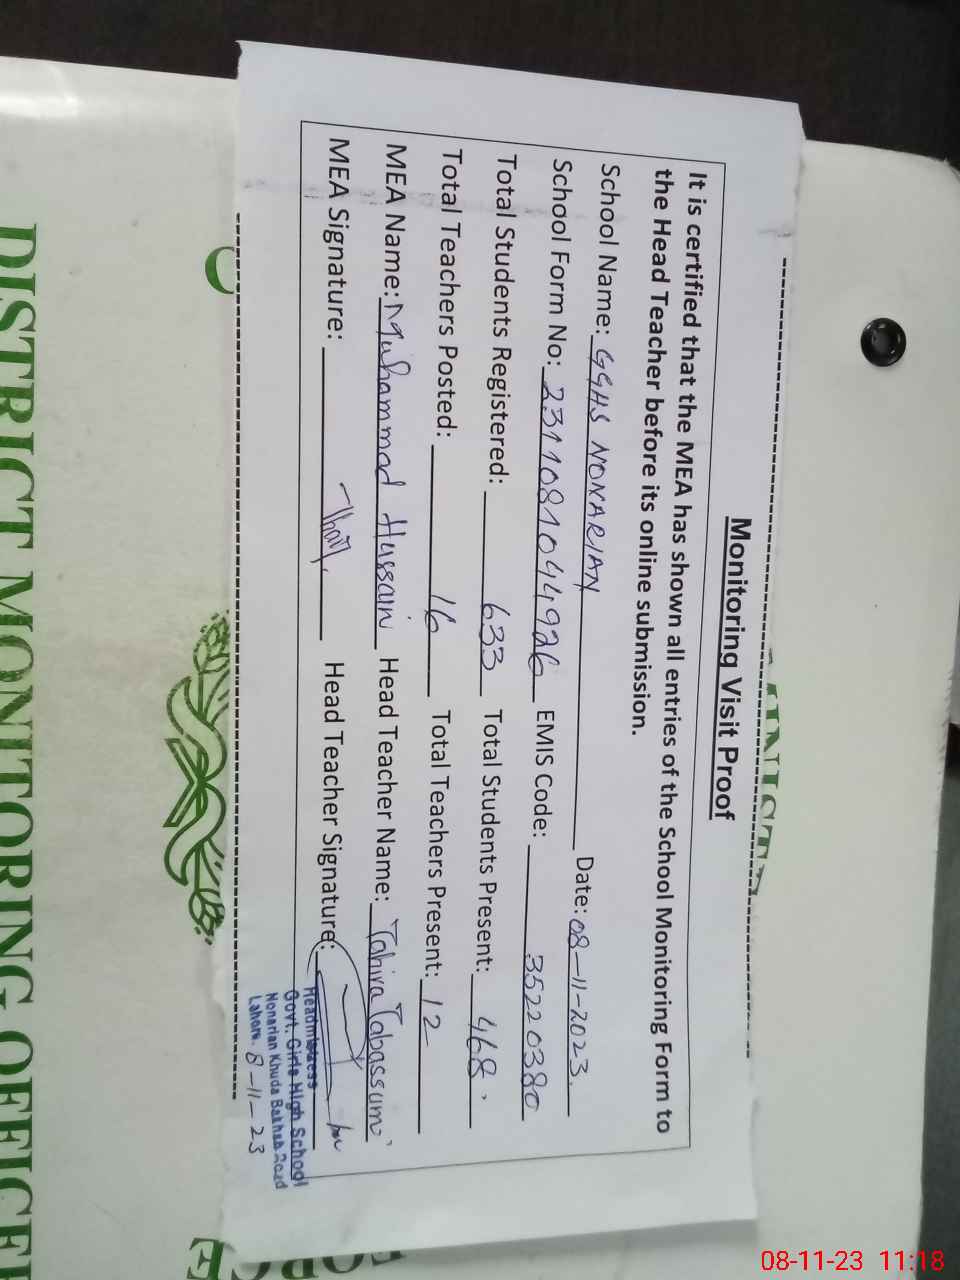 Monitoring Visit Proof
It is certified that the MEA has shown all entries of the School Monitoring Form to
the Head Teacher before its online submission.
School Name: GGHS NONARIAN Date: 08-11-2023
School Form No: 2311081044926 EMIS Code: 35220380
Total Students Registered: 633 Total Students Present: 468
Total Teachers Posted: 16 Total Teachers Present: 12
MEA Name: Muhammad Hussain Head Teacher Name: Tahira Tabassum
MEA Signature: Head Teacher Signature:
Headmistress
Govt. Girls High School
Nonarian Khuda Bakhsh Road
Lahore. 8-11-23
DISTRICT MONITORING OFFICE
08-11-23 11:18